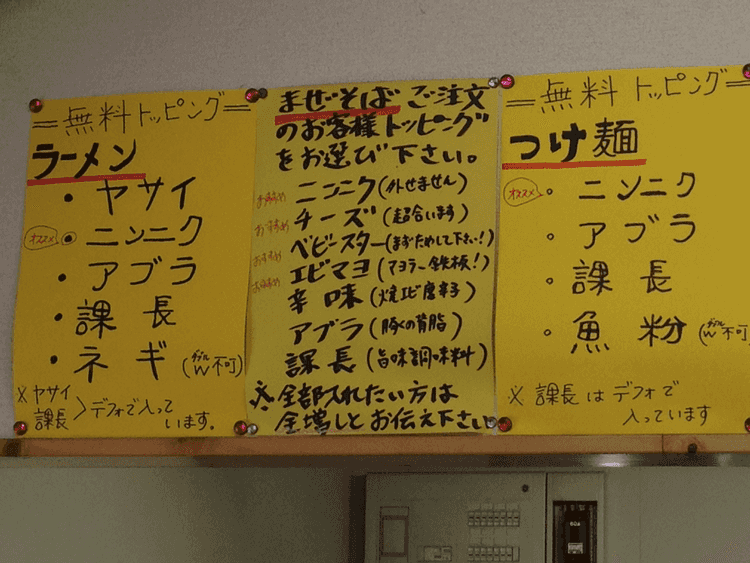 =無料トッピング=
ラーメン
・ヤサイ
オススメ ・ニンニク
・アブラ
・課長
・ネギ(ダブルW不可)
※ヤサイ
課長 > デフォで入って
います。
まぜそばご注文
のお客様トッピング
をお選び下さい。
おすすめ ニンニク(外せません)
おすすめ チーズ(超合います)
おすすめ ベビースター(まずためして下さい!)
おすすめ エビマヨ(マヨラー鉄板!)
辛味(焼エビ唐辛子)
アブラ(豚の背脂)
課長(旨味調味料)
※全部入れたい方は
全増しとお伝え下さい
=無料トッピング=
つけ麺
オススメ 。ニンニク
。アブラ
。課長
。魚粉(ダブルW不可
※課長はデフォで
入っています